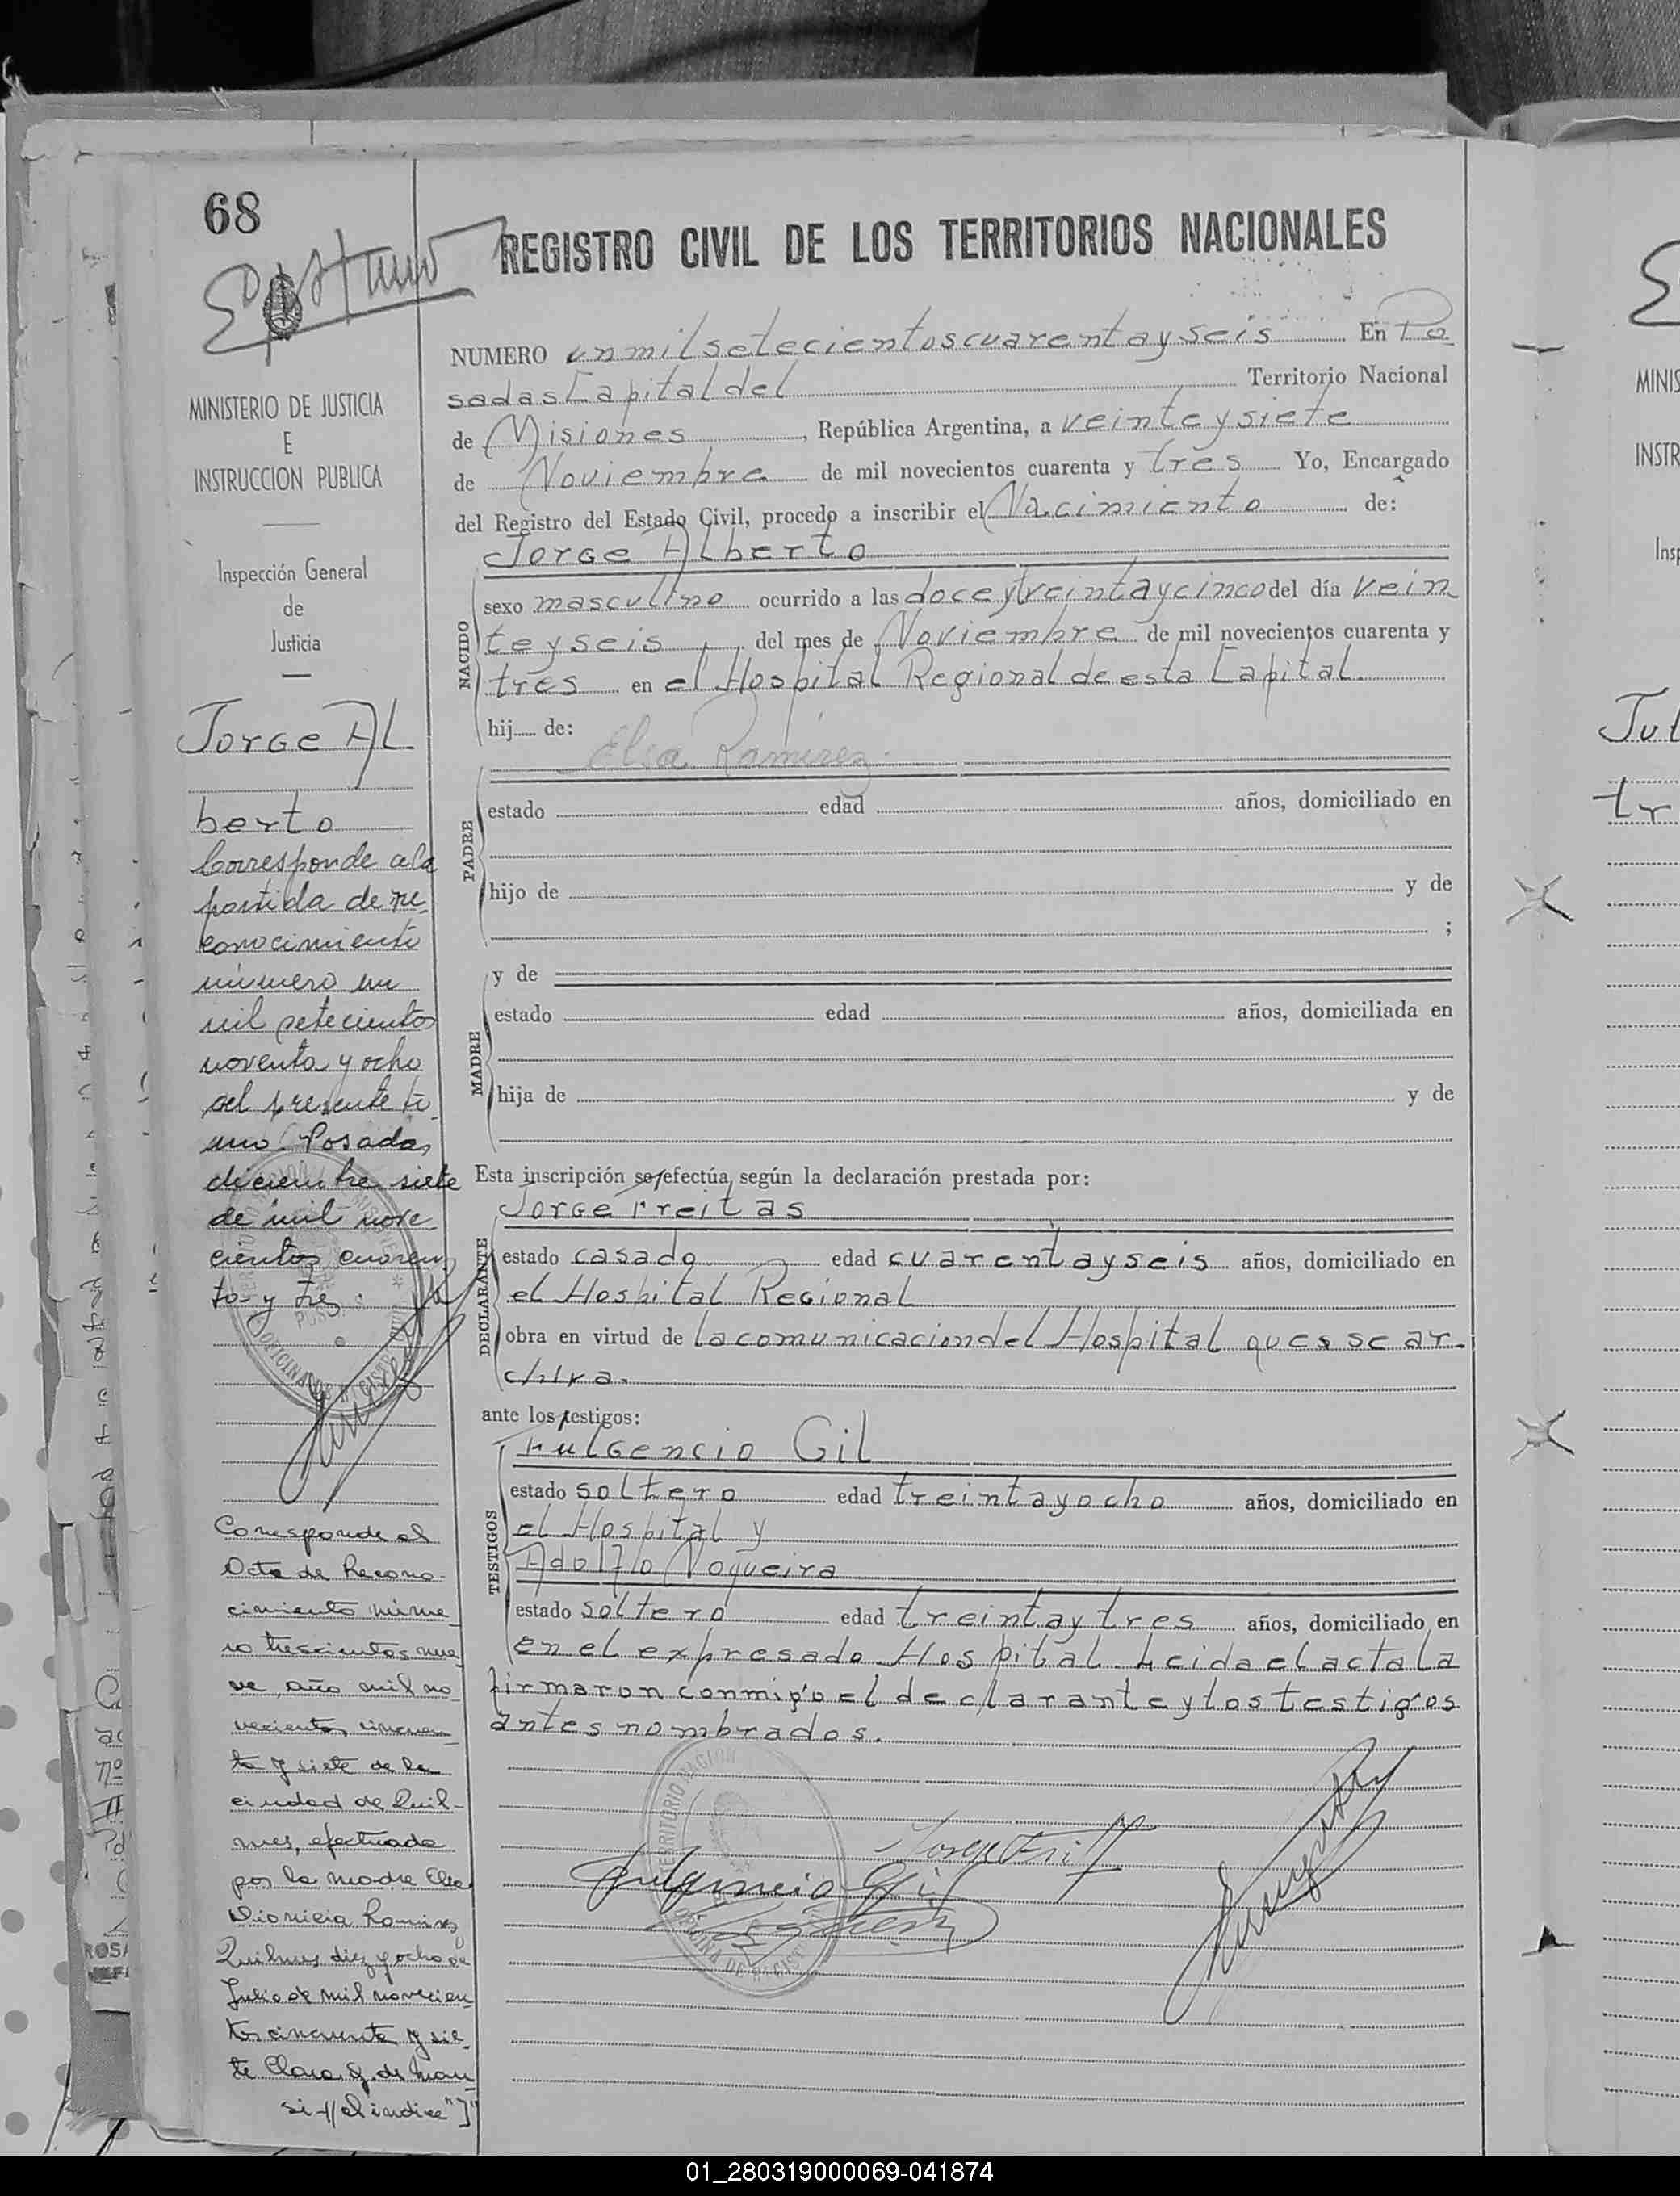 68
REGISTRO CIVIL DE LOS TERRITORIOS NACIONALES
MINISTERIO DE JUSTICIA
E
INSTRUCCION PUBLICA
Inspección General
de
Justicia
Jorge Al
berto
Corresponde a la
partida de re
conocimiento
número un
mil setecientos
noventa y ocho
del presente to
mo Posadas,
diciembre siete
de mil nove
cientos cuaren
ta y tres.
Corresponde al
Acta de Recono-
cimiento núme
ro trescientos nue
ve año mil no
vecientos cincuen
ta y siete de la
ciudad de Quil-
mes, efectuada
por la madre Elsa
Dionicia Ramirez
Quilmes diez y ocho de
Julio de mil novecien
tos cincuenta y sie
te Clara G. de
si el indice "J"
NUMERO un mil setecientos cuarenta y seis En Po
sadas Capital del Territorio Nacional
de Misiones, República Argentina, a veinte y siete
de Noviembre de mil novecientos cuarenta y tres Yo, Encargado
del Registro del Estado Civil, procedo a inscribir el Nacimiento de:
Jorge Alberto
NACIDO
sexo masculino ocurrido a las doce y treinta y cinco del día vein
te y seis del mes de Noviembre de mil novecientos cuarenta y
tres en el Hospital Regional de esta Capital.
hij de:
Elsa Ramirez
PADRE
estado edad años, domiciliado en
hijo de y de
;
y de
MADRE
estado edad años, domiciliada en
hija de y de
Esta inscripción se efectúa, según la declaración prestada por:
Jorge Freitas
DECLARANTE
estado casado edad cuarenta y seis años, domiciliado en
el Hospital Regional
obra en virtud de la comunicacion del Hospital que se ar-
chiva.
ante los testigos:
Fulgencio Gil
TESTIGOS
estado soltero edad treinta y ocho años, domiciliado en
el Hospital y
Adolfo Nogueira
estado soltero edad treinta y tres años, domiciliado en
en el expresado Hospital. Leida el acta la
firmaron conmigo el declarante y los testigos
antes nombrados.
Jorge Freit
Fulgencio Gil
01_280319000069-041874